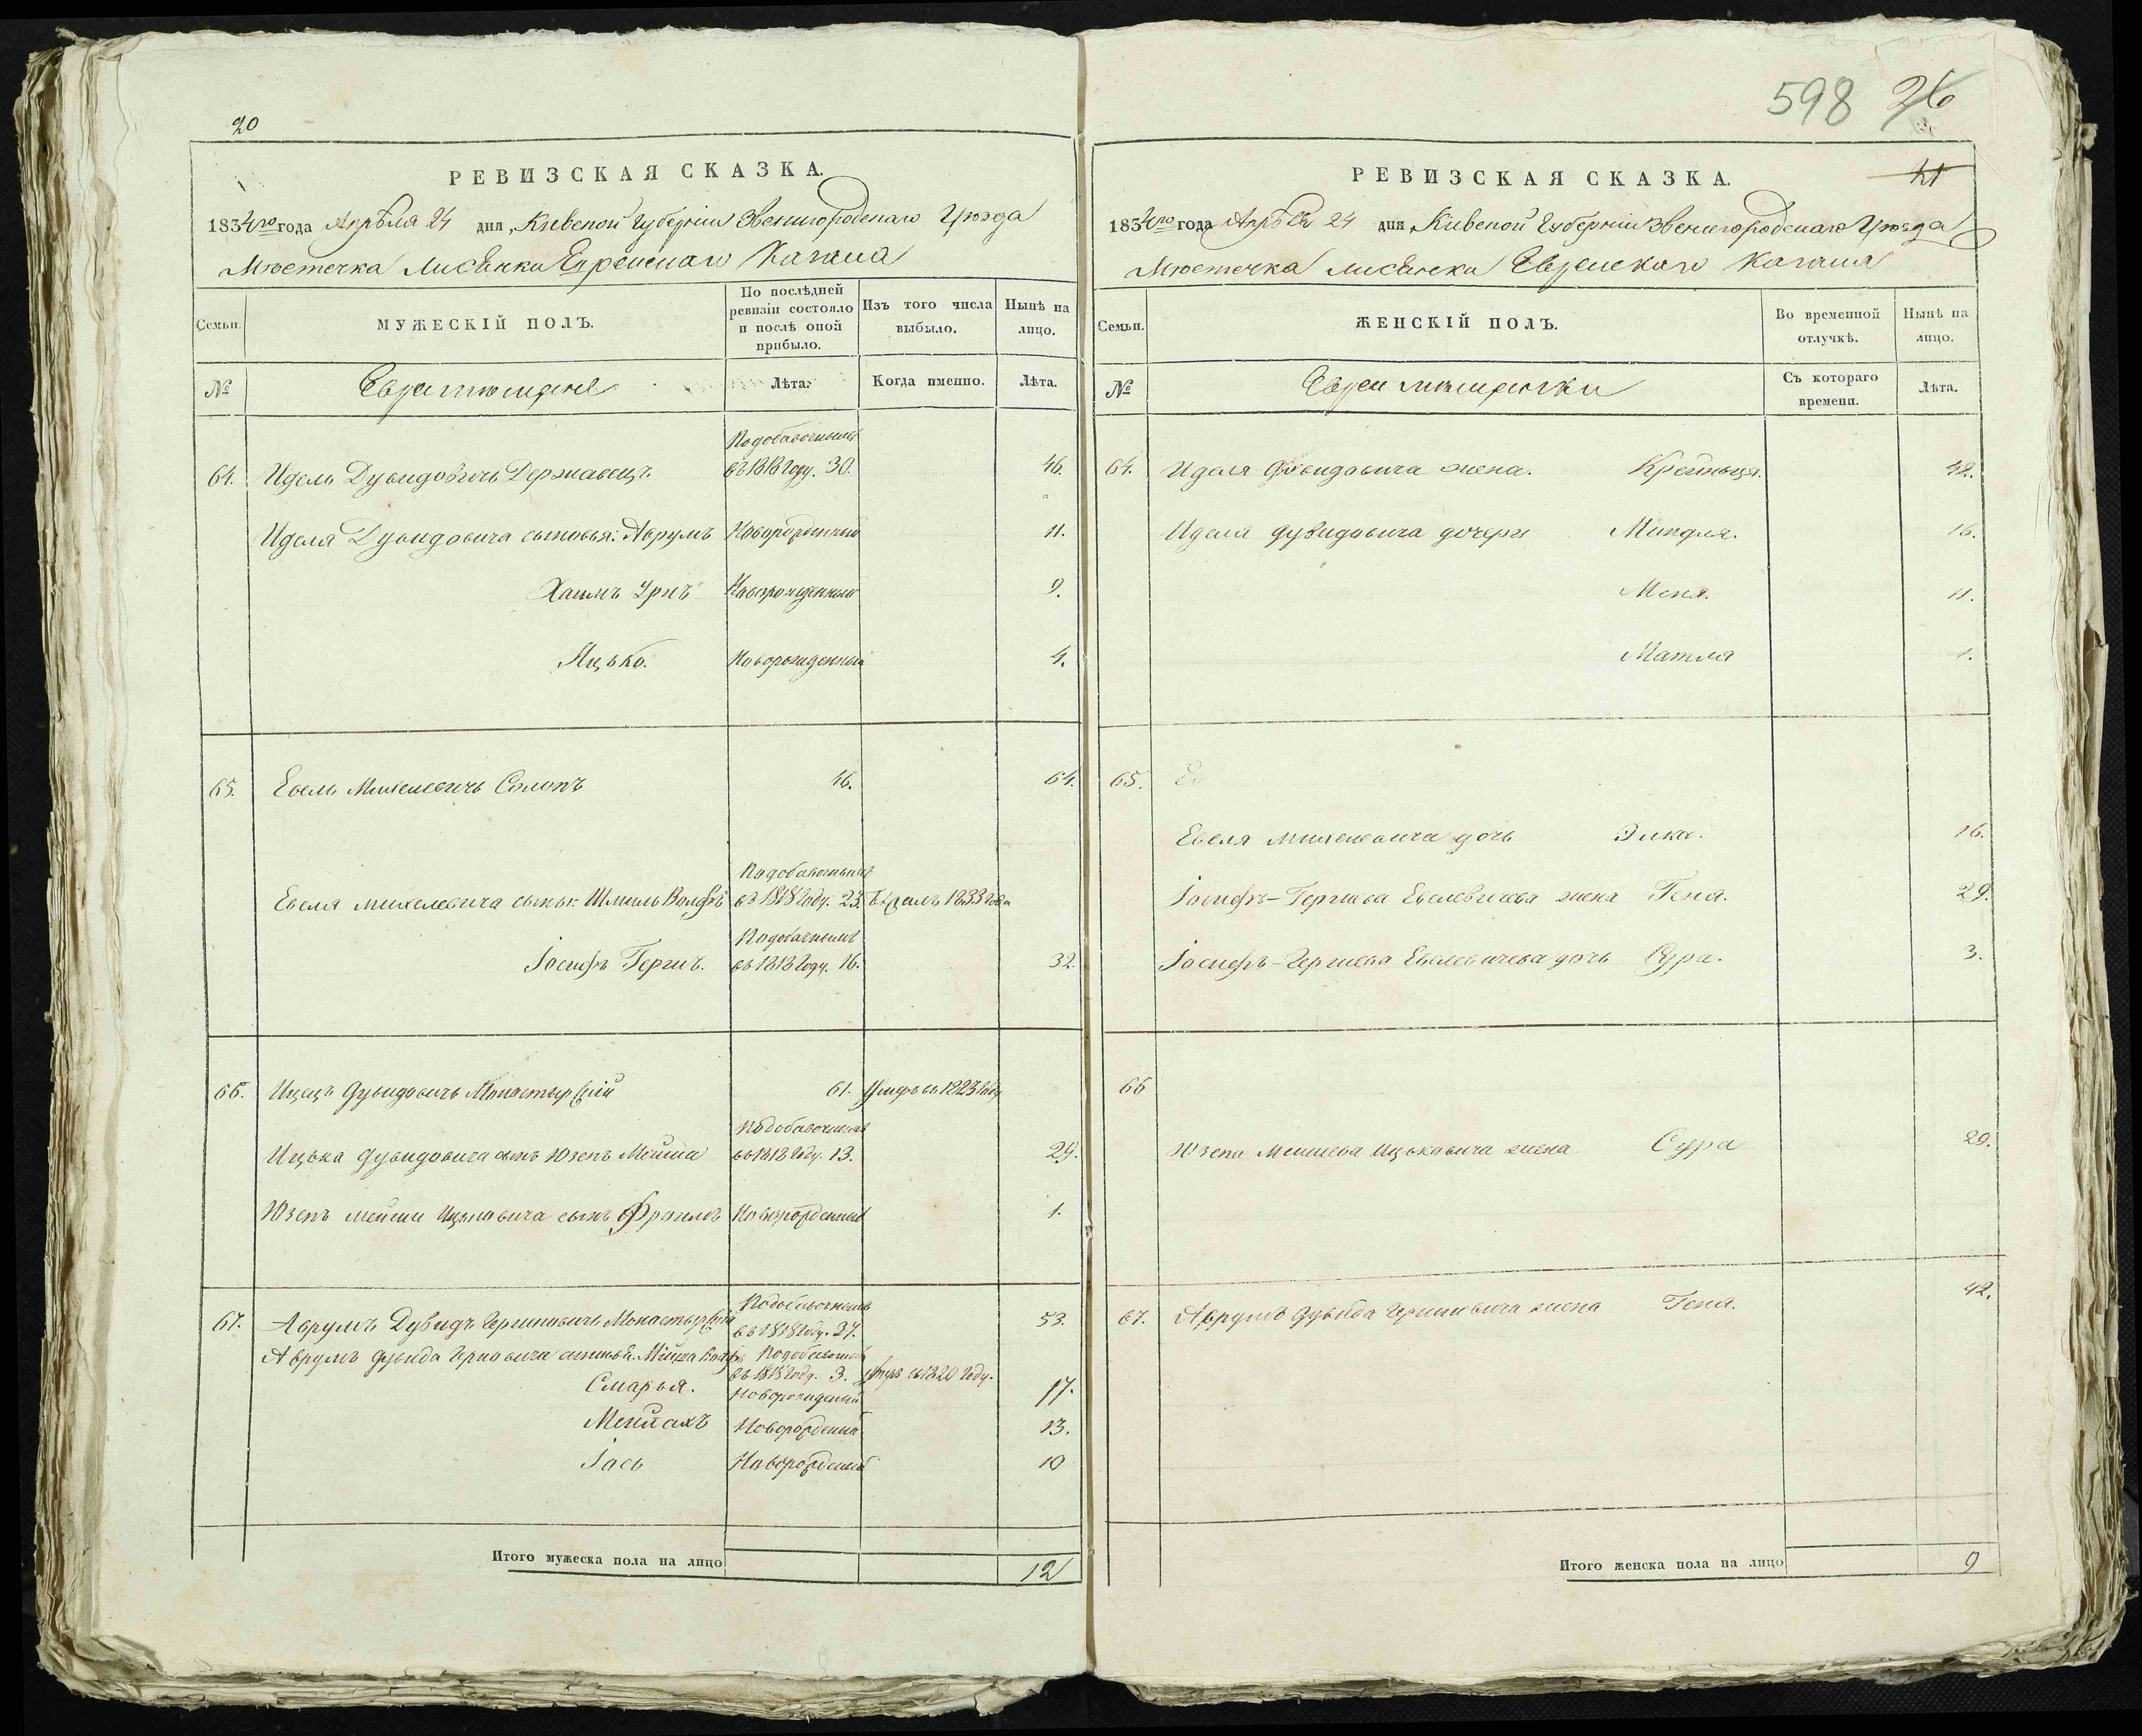 20
РЕВИЗСКАЯ СКАЗКА.
1834го года Апрѣля 24 дня, Кіевской Губерніи Звенигородскаго Уѣзда
Мѣстечка Лисянки Еврейскаго Кагала
Семьи.
МУЖЕСКІЙ ПОЛЪ.
По послѣдней ревизіи состояло и послѣ оной прибыло.
Изъ того числа выбыло.
Нынѣ на лицо.
№
Евреи мѣщане
Лѣта.
Когда именно.
Лѣта.
Подобавочнымъ
64. Идель Дувидовичъ Державецъ въ 1818 Году. 30. 46.
Иделя Дувидовича сыновья: Аврумъ Новорожденный 11.
Хаимъ Урнъ Новорожденный 9.
Яцько. Новорожденный 4.
65. Евель Михелевичъ Солопъ 46. 64.
Подобавочнымъ
Евеля Михелевича сынъ: Шмиль Волфъ въ 1818 Году. 23. 1833 Года
Подобавочнымъ
Іосифъ Гершъ. въ 1818 Году. 16. 32.
66. Ицекъ Дувидовичъ Монастырскій 61. Умеръ въ 1823 Году
Подобавочнымъ
Ицька Дувидовича сынъ Юзепъ Мойша въ 1818 Году. 13. 29.
Юзепъ Мойши Ицковича сынъ Фроимъ Новорожденный 1.
Подобавочнымъ
67. Аврумъ Дувидъ Гершковичъ Монастырскій въ 1818 Году. 37. 53.
Аврумъ Дувида Гершковича сыновья. Мойша Волфъ Подобавочнымъ
въ 1818 Году. 3. умеръ въ 1820 Году.
Смарья. Новорожденный 17.
Менйахъ Новорожденный 13.
Іось Новорожденный 10
Итого мужеска пола на лицо 12
598 26
21
РЕВИЗСКАЯ СКАЗКА.
1834го года Апрѣля 24 дня, Кіевской Губерніи Звенигородскаго Уѣзда
Мѣстечка Лисянки Еврейскаго Кагала
Семьи.
ЖЕНСКІЙ ПОЛЪ.
Во временной отлучкѣ.
Нынѣ на лицо.
№
Евреи мѣщанки
Съ котораго времени.
Лѣта.
64. Иделя Дувидовича жена. Крейныця. 42.
Иделя Дувидовича дочери Миндля. 16.
Меня. 11.
Матля 1.
65. Ев
Евеля Михелевича дочь Элка. 16.
Іосифъ-Гершка Евелевичева жена Геня. 29.
Іосифъ-Гершка Евелевичева дочь Сура. 3.
66
Юзепа Мошкова Ицьковича жена Сура 29.
67. Аврумъ Дувида Гершковича жена Геня. 42.
Итого женска пола на лицо 9